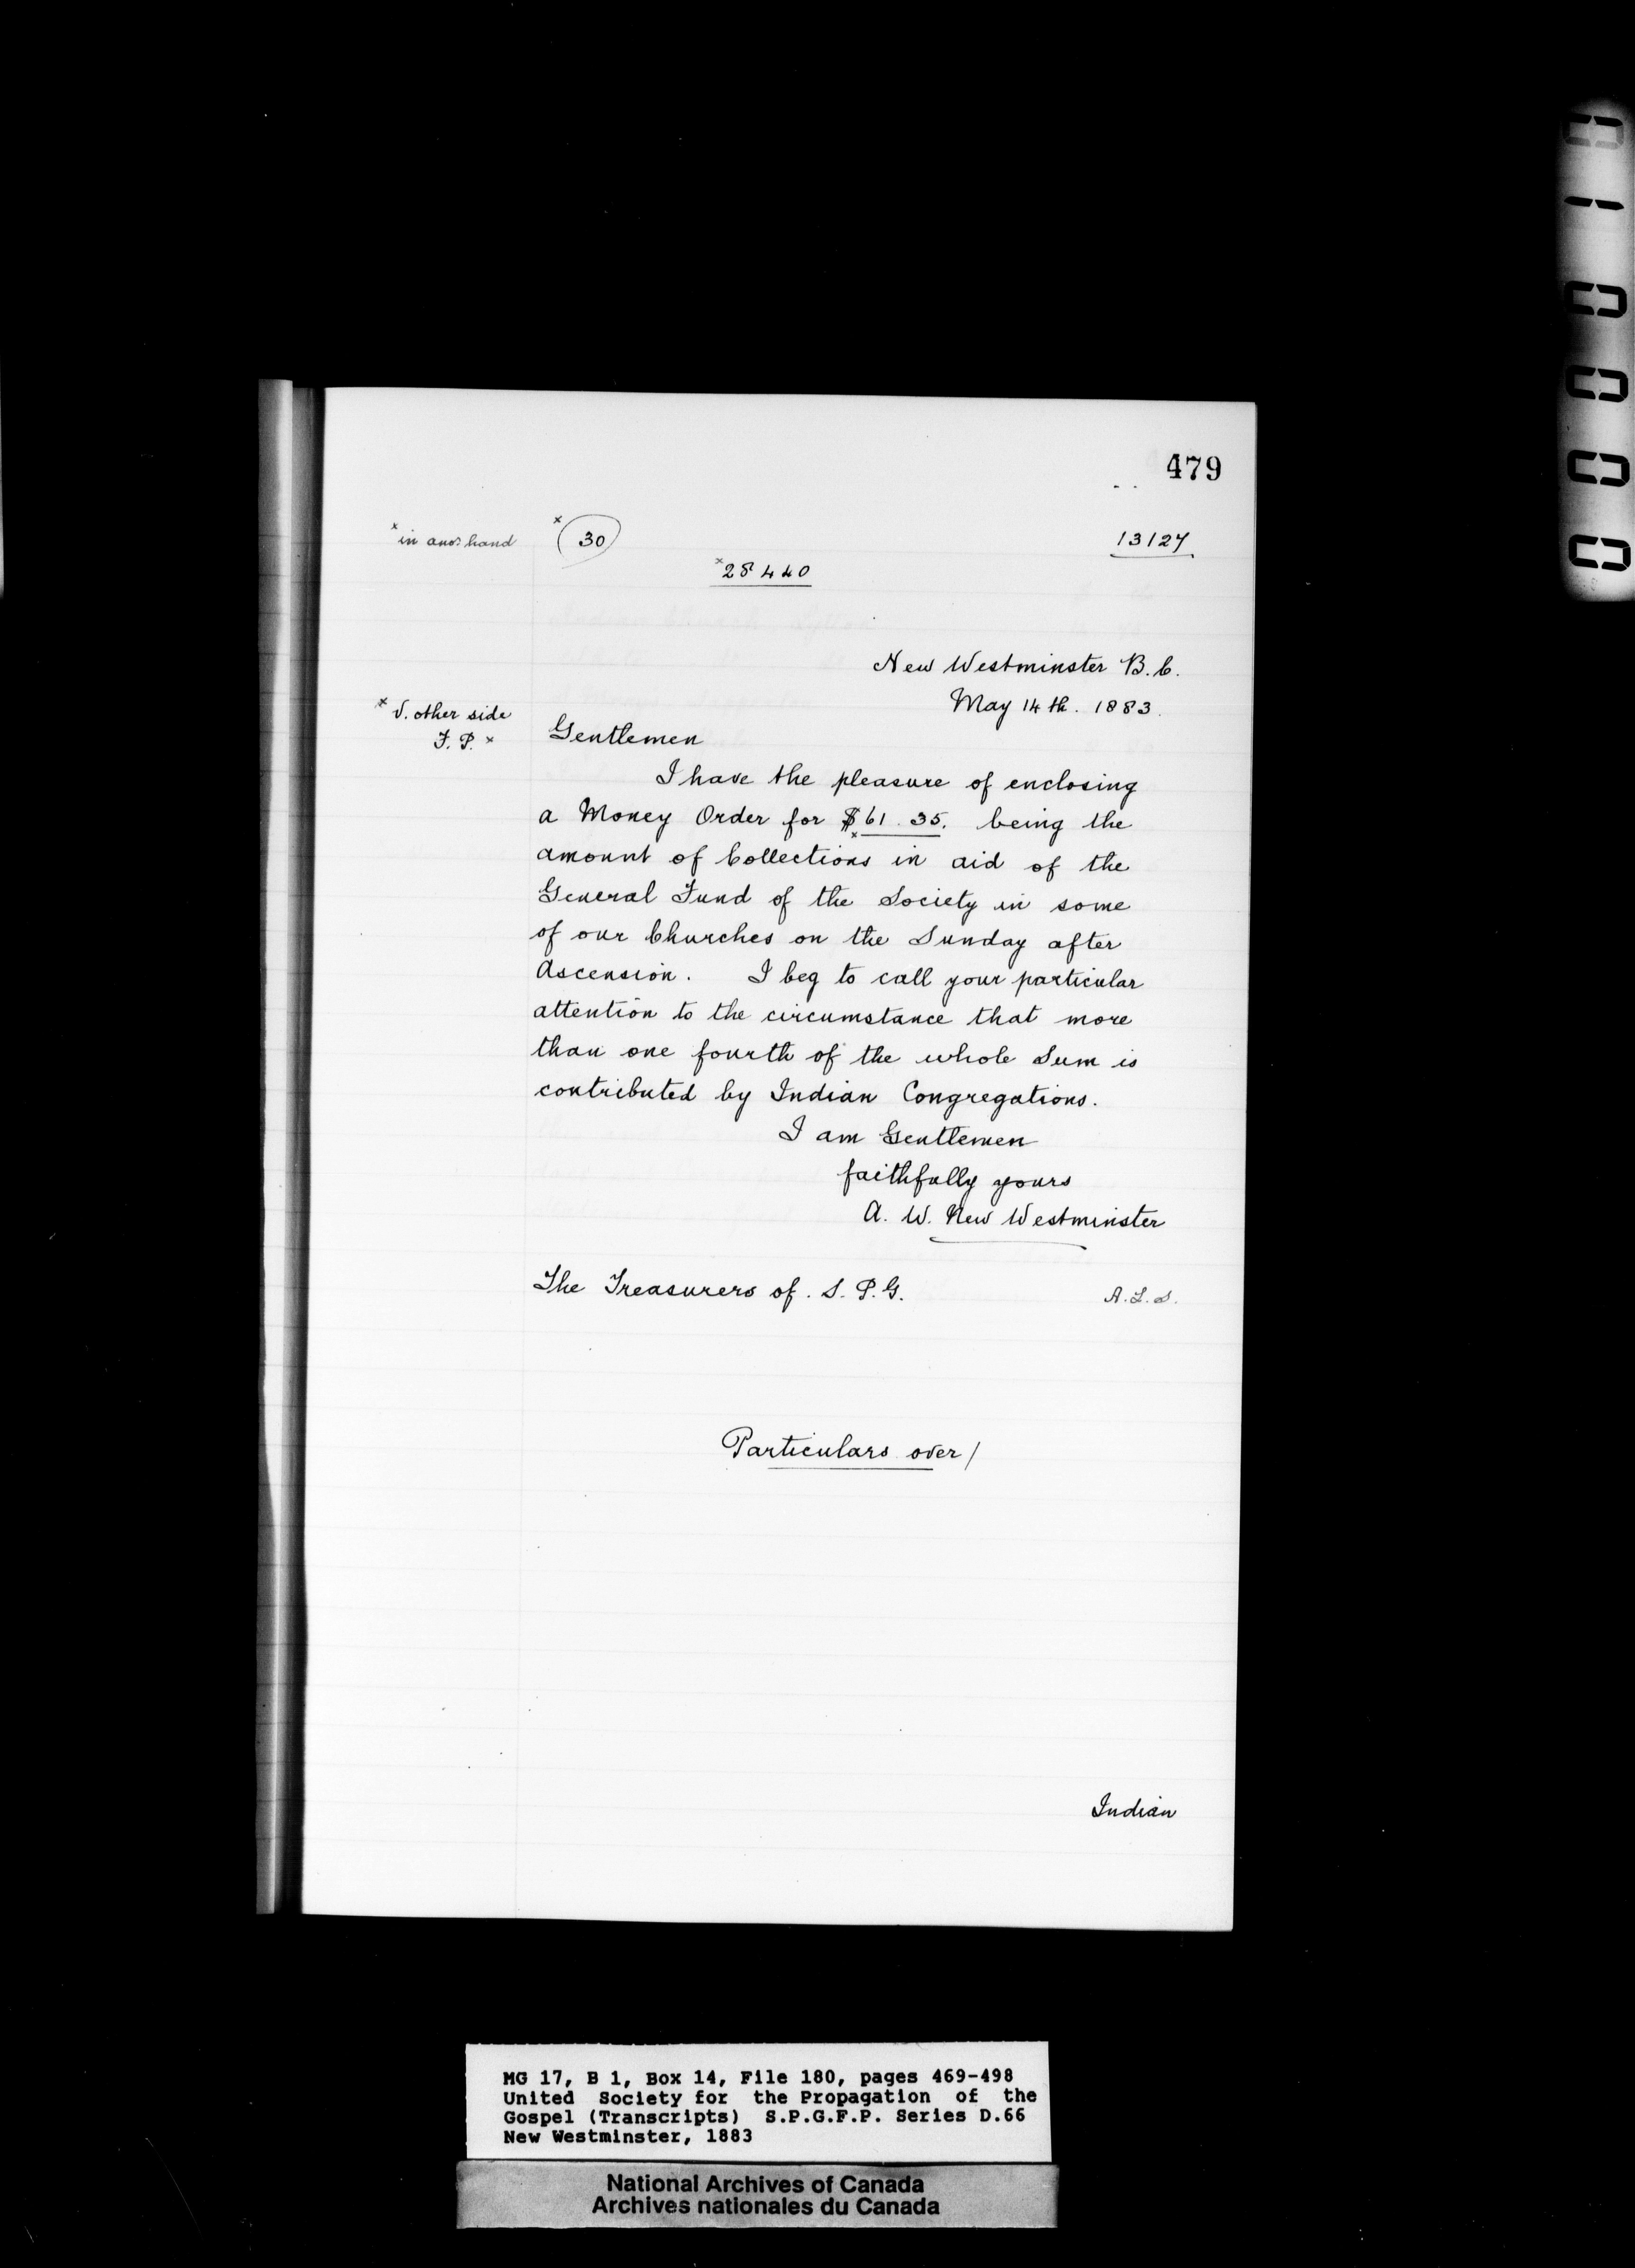 479
x in anor. hand
x (30)
13127
x 28440
New Westminster B.C.
May 14th. 1883.
x V. other side
F. P. x
Gentlemen
I have the pleasure of enclosing
a Money Order for $61.35. being the
x
amount of Collections in aid of the
General Fund of the Society in some
of our Churches on the Sunday after
Ascension. I beg to call your particular
attention to the circumstance that more
than one fourth of the whole Sum is
contributed by Indian Congregations.
I am Gentlemen
faithfully yours
A. W. New Westminster
The Treasurers of. S. P. G.
A. L. S.
Particulars over /
Indian
MG 17, B 1, Box 14, File 180, pages 469-498
United Society for the Propagation of the
Gospel (Transcripts) S.P.G.F.P. Series D.66
New Westminster, 1883
National Archives of Canada
Archives nationales du Canada
000010